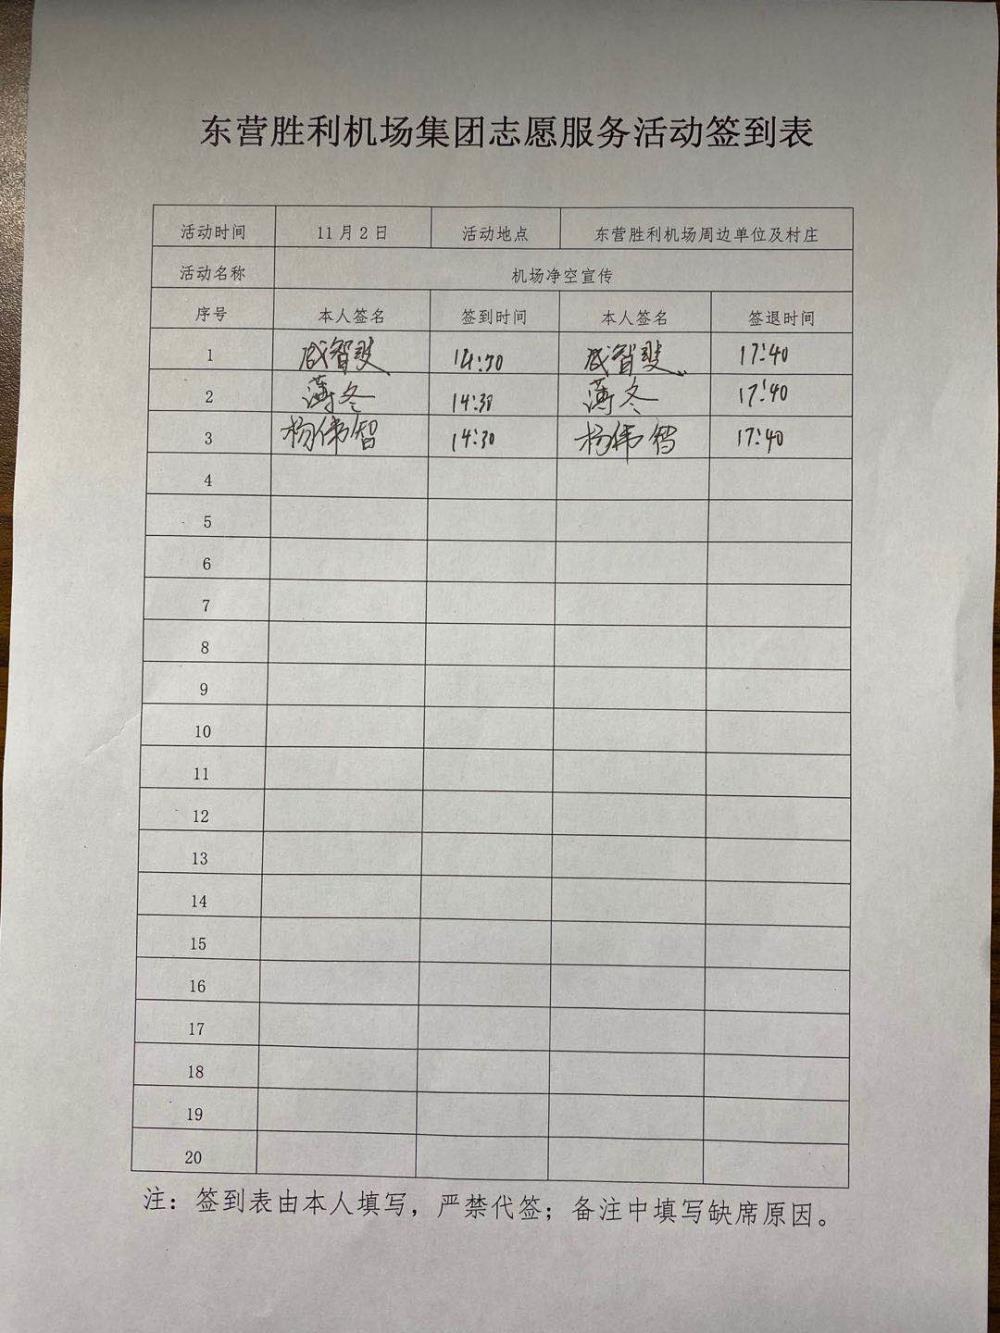 东营胜利机场集团志愿服务活动签到表
活动时间 11月2日 活动地点 东营胜利机场周边单位及村庄
活动名称 机场净空宣传
序号 本人签名 签到时间 本人签名 签退时间
1 智斐 智斐 17:40
2 薄冬 14:30 薄冬 17:40
3 杨伟智 14:30 杨伟智 17:40
4
5
6
7
8
9
10
11
12
13
14
15
16
17
18
19
20
注：签到表由本人填写，严禁代签；备注中填写缺席原因。